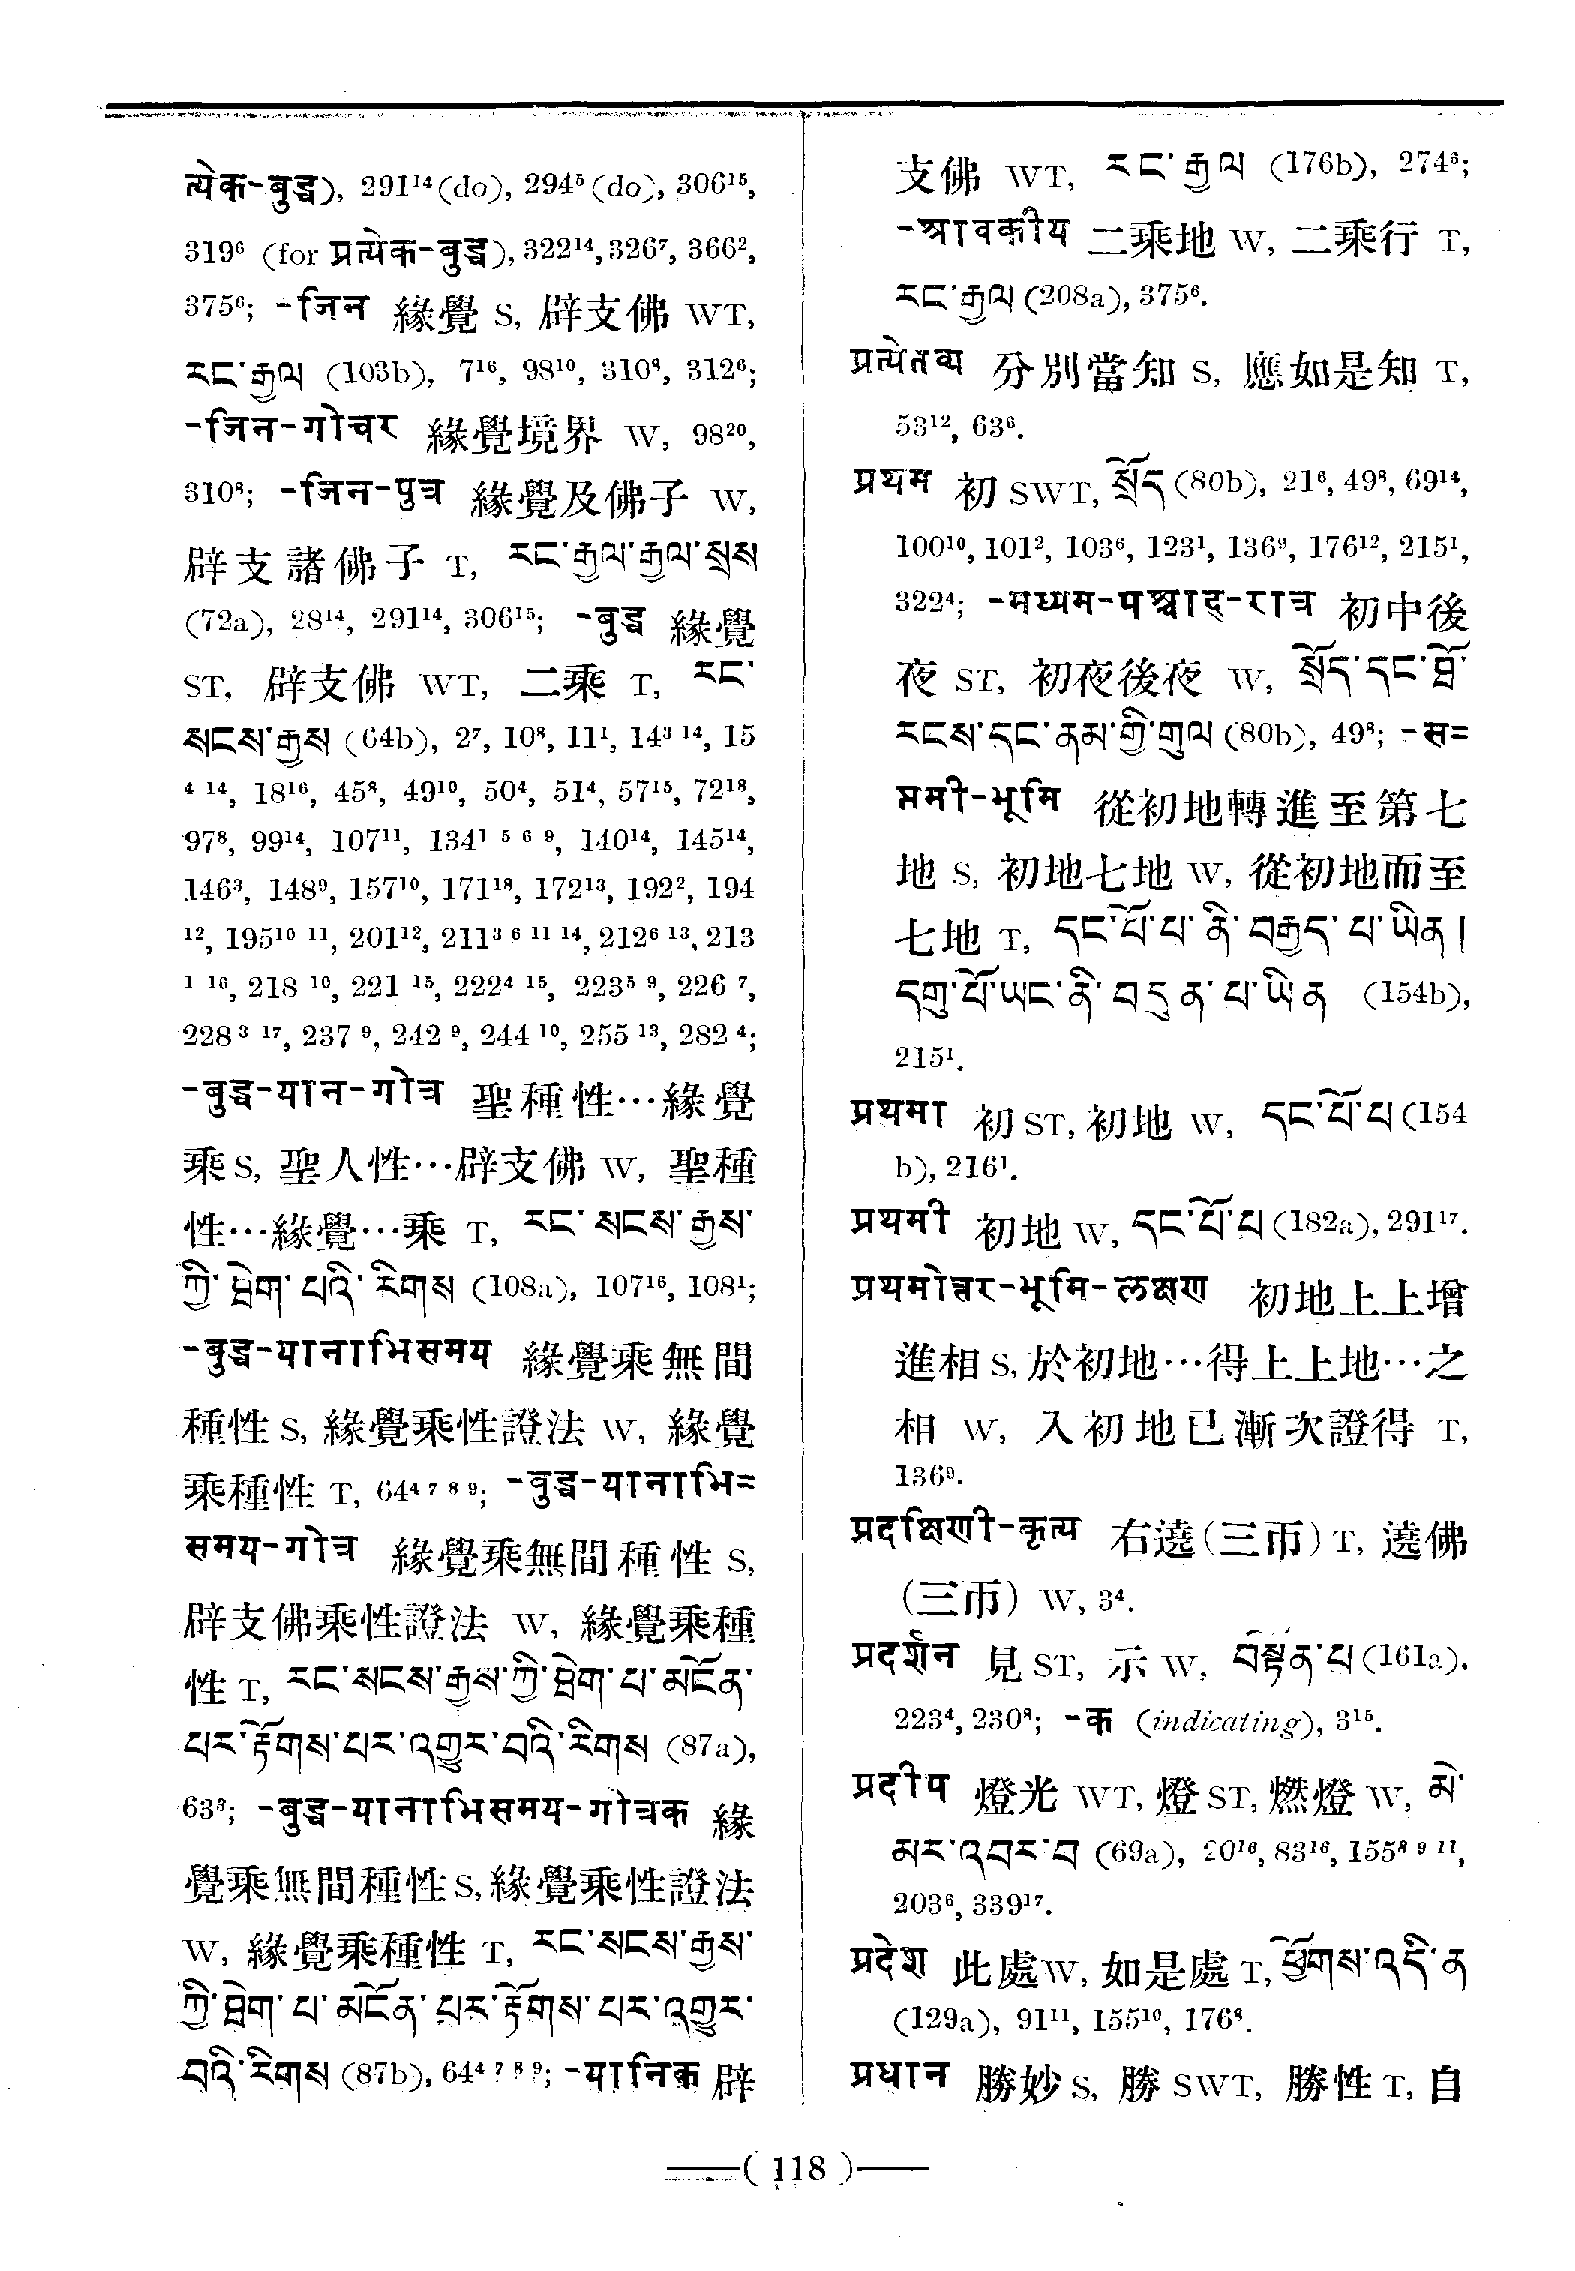 त्येक-बुद्ध), 291¹⁴(do), 294⁵(do), 306¹⁵,
319⁶ (for प्रत्येक-बुद्ध), 322¹⁴, 326⁷, 366²,
375⁶; -जिन 緣覺 S, 辟支佛 WT,
རང་རྒྱལ (103b), 7¹⁶, 98¹⁰, 310⁸, 312⁶;
-जिन-गोचर 緣覺境界 W, 98²⁰,
310⁸; -जिन-पुत्र 緣覺及佛子 W,
辟支諸佛子 T, རང་རྒྱལ་རྒྱལ་སྲས
(72a), 28¹⁴, 291¹⁴, 306¹⁵; -बुद्ध 緣覺
ST, 辟支佛 WT, 二乘 T, རང་
སངས་རྒྱས (64b), 2⁷, 10⁸, 11¹, 14³ ¹⁴, 15
⁴ ¹⁴, 18¹⁶, 45⁸, 49¹⁰, 50⁴, 51⁴, 57¹⁵, 72¹⁸,
97⁸, 99¹⁴, 107¹¹, 134¹ ⁵ ⁶ ⁹, 140¹⁴, 145¹⁴,
146³, 148⁹, 157¹⁰, 171¹⁸, 172¹³, 192², 194
¹², 195¹⁰ ¹¹, 201¹², 211³ ⁶ ¹¹ ¹⁴, 212⁶ ¹³, 213
¹ ¹⁶, 218 ¹⁰, 221 ¹⁵, 222⁴ ¹⁵, 223⁵ ⁹, 226 ⁷,
228³ ¹⁷, 237 ⁹, 242 ⁹, 244 ¹⁰, 255 ¹³, 282 ⁴;
-बुद्ध-यान-गोत्र 聖種性…緣覺
乘 S, 聖人性…辟支佛 W, 聖種
性…緣覺…乘 T, རང་སངས་རྒྱས་
ཀྱི་ཐེག་པའི་རིགས (108a), 107¹⁶, 108¹;
-बुद्ध-यानाभिसमय 緣覺乘無間
種性 S, 緣覺乘性證法 W, 緣覺
乘種性 T, 64⁴ ⁷ ⁸ ⁹; -बुद्ध-यानाभि=
समय-गोत्र 緣覺乘無間種性 S,
辟支佛乘性證法 W, 緣覺乘種
性 T, རང་སངས་རྒྱས་ཀྱི་ཐེག་པ་མངོན་
པར་རྟོགས་པར་འགྱུར་བའི་རིགས (87a),
63³; -बुद्ध-यानाभिसमय-गोत्रक 緣
覺乘無間種性 S, 緣覺乘性證法
W, 緣覺乘種性 T, རང་སངས་རྒྱས་
ཀྱི་ཐེག་པ་མངོན་པར་རྟོགས་པར་འགྱུར་
བའི་རིགས (87b), 64⁴ ⁷ ⁸ ⁹; -यानिक 辟
支佛 WT, རང་རྒྱལ (176b), 274⁶;
-श्रावकीय 二乘地 W, 二乘行 T,
རང་རྒྱལ (208a), 375⁶.
प्रत्येतव्य 分別當知 S, 應如是知 T,
53¹², 63⁶.
प्रथम 初 SWT, སྲོད (80b), 21⁶, 49⁸, 69¹⁴,
100¹⁰, 101², 103⁶, 123¹, 136⁹, 176¹², 215¹,
322⁴; -मध्यम-पश्चाद्-रात्र 初中後
夜 ST, 初夜後夜 W, སྲོད་དང་ཐོ་
རངས་དང་ནམ་གྱི་གུལ (80b), 49⁸; -स=
प्तमी-भूमि 從初地轉進至第七
地 S, 初地七地 W, 從初地而至
七地 T, དང་པོ་པ་ནི་བརྒྱད་པ་ཡིན།
དགུ་པོ་ཡང་ནི་བདུན་པ་ཡིན (154b),
215¹.
प्रथमा 初 ST, 初地 W, དང་པོ་པ (154
b), 216¹.
प्रथमी 初地 W, དང་པོ་པ (182a), 291¹⁷.
प्रथमोत्तर-भूमि-लक्षण 初地上上增
進相 S, 於初地…得上上地…之
相 W, 入初地已漸次證得 T,
136⁹.
प्रदक्षिणी-कृत्य 右遶(三帀) T, 遶佛
(三帀) W, 3⁴.
प्रदर्शन 見 ST, 示 W, བསྟན་པ (161a),
223⁴, 230⁸; -क (indicating), 3¹⁵.
प्रदीप 燈光 WT, 燈 ST, 燃燈 W, མེ་
མར་འབར་བ (69a), 20¹⁶, 83¹⁶, 155⁸ ⁹ ¹¹,
203⁶, 339¹⁷.
प्रदेश 此處 W, 如是處 T, ཕྱོགས་འདི་ན
(129a), 91¹¹, 155¹⁰, 176⁸.
प्रधान 勝妙 S, 勝 SWT, 勝性 T, 自
( 118 )